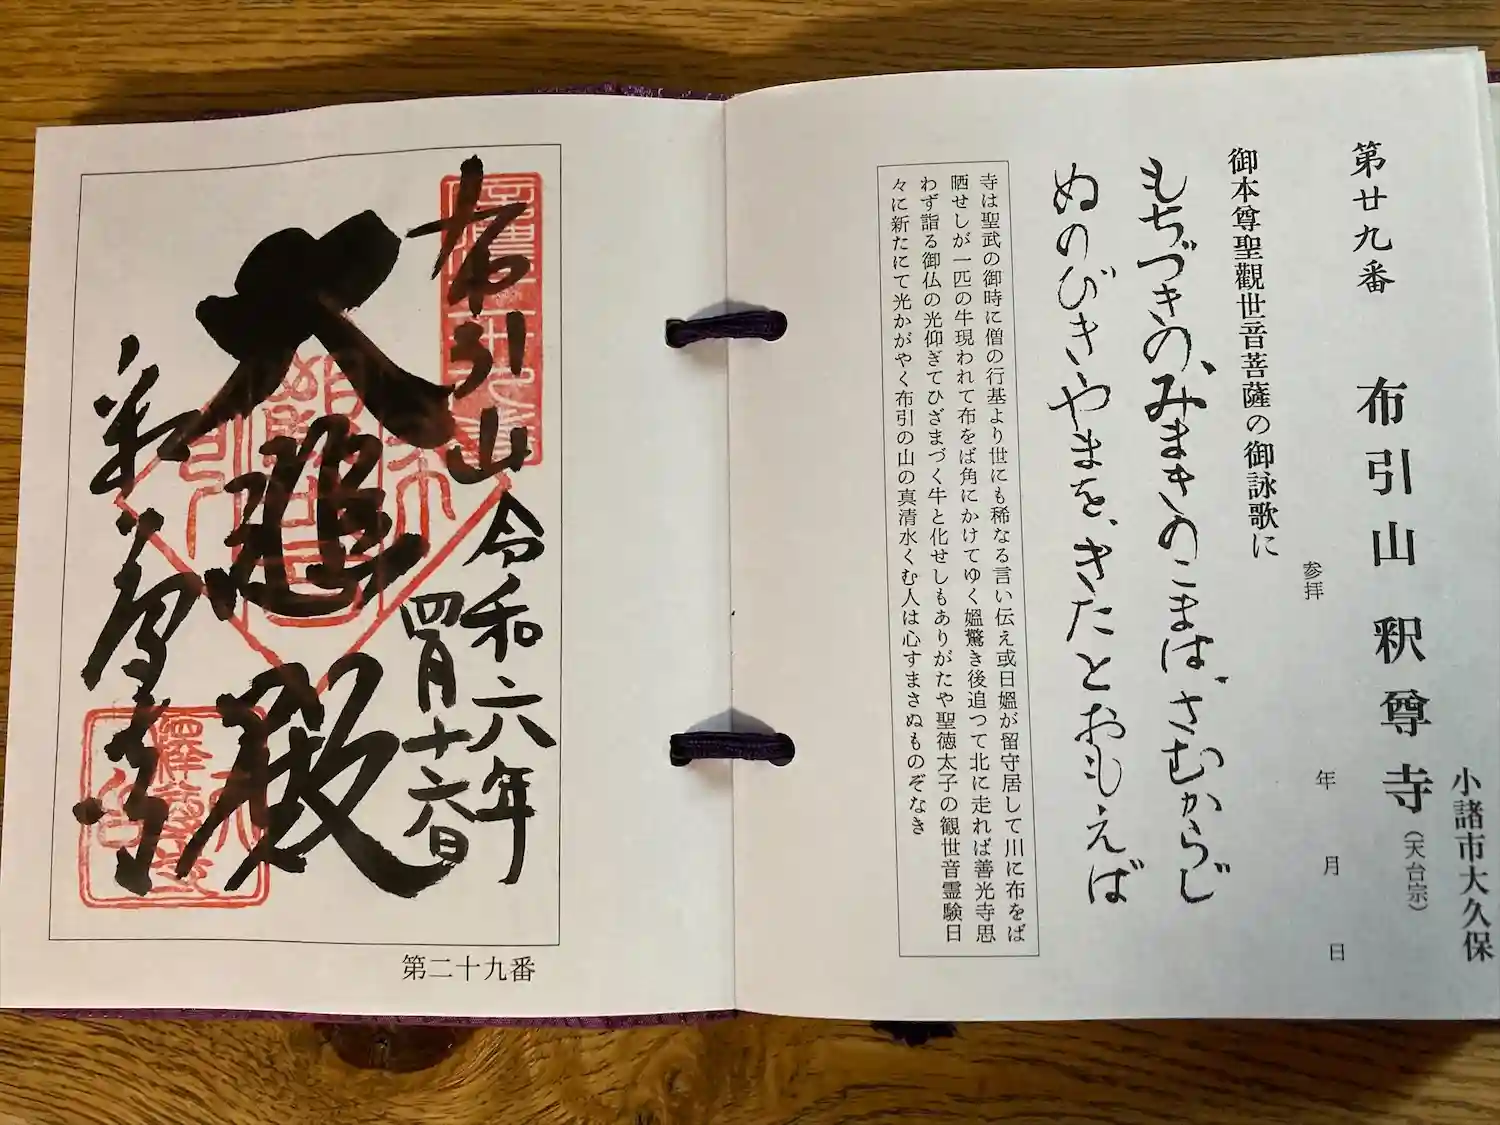 小諸市大久保
第廿九番 布引山 釈尊寺(天台宗)
参拝 年 月 日
御本尊聖觀世音菩薩の御詠歌に
もちづきの、みまきのこまは、さむからじ
ぬのびきやまを、きたとおもえば
寺は聖武の御時に僧の行基より世にも稀なる言い伝え或日媼が留守居して川に布をば
晒せしが一匹の牛現われて布をば角にかけてゆく媼驚き後追つて北に走れば善光寺思
わず詣る御仏の光仰ぎてひざまづく牛と化せしもありがたや聖徳太子の観世音霊験日
々に新たにて光かがやく布引の山の真清水くむ人は心すまさぬものぞなき
布引山
令和六年
四月十六日
大悲殿
釈尊寺
第二十九番